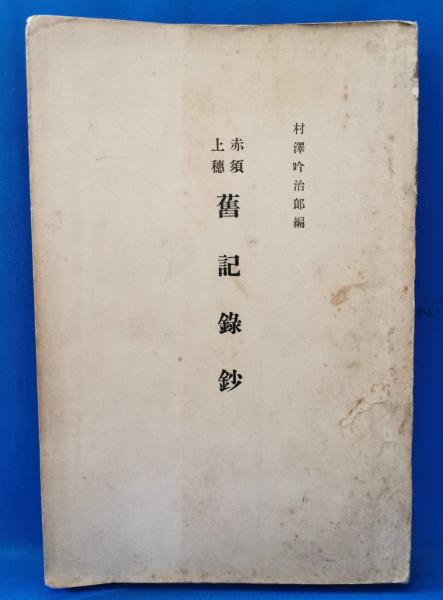 村澤吟治郎編
赤須
上穗
舊記錄鈔